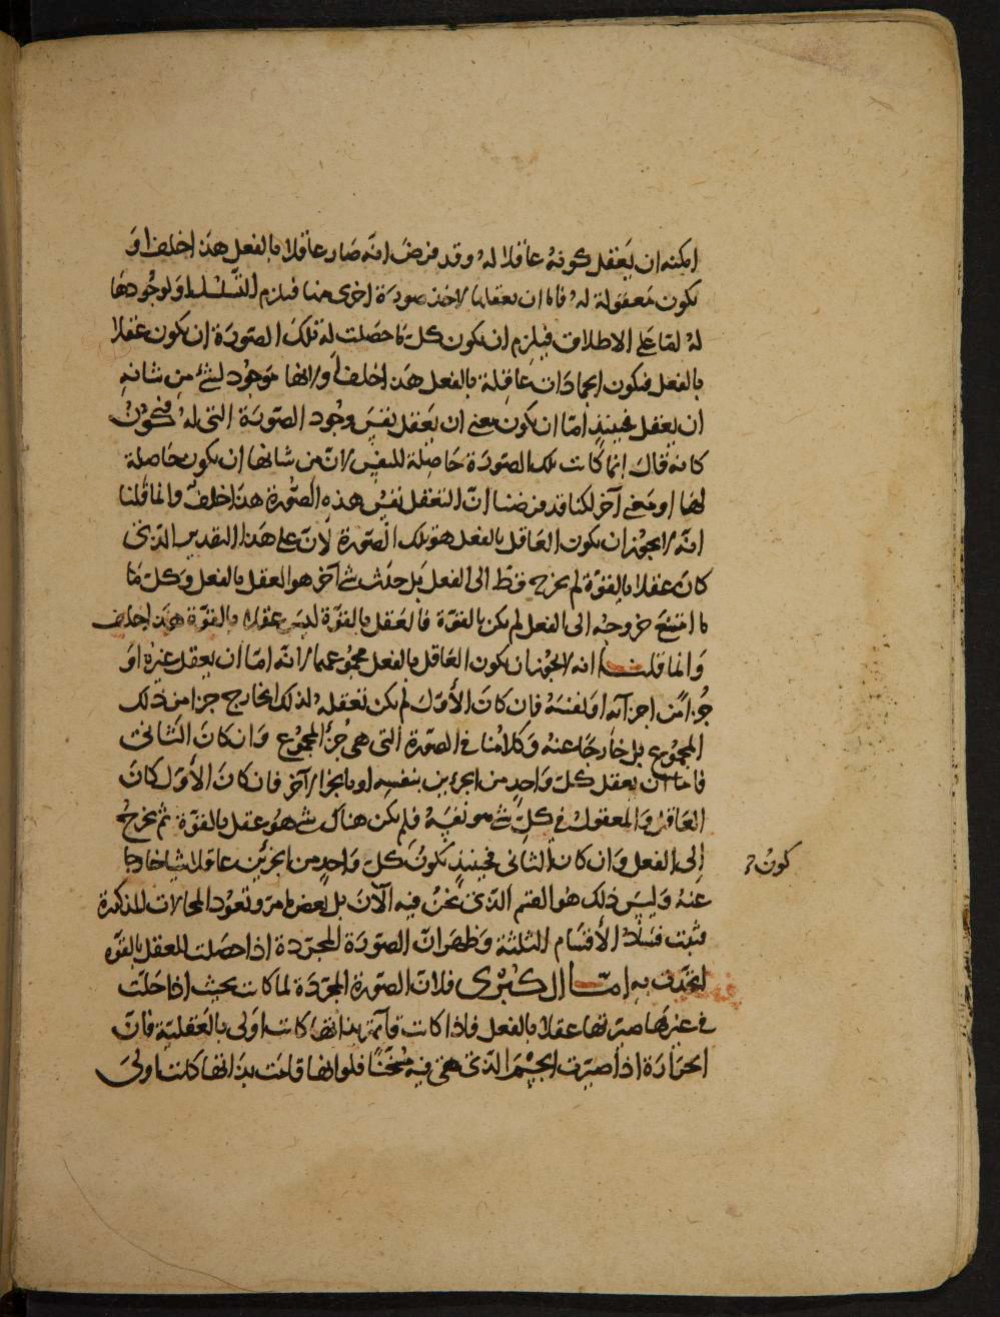 امكنه ان يعقل كونه عاقلا له وقد فرض انه صار عاقلا بالفعل هذا خلف او
تكون معقولة له فاما ان يعقلها لاخذ صورة اخرى منها فيلزم التسلسل او لوجودها
له اما على الاطلاق فيلزم ان يكون كل ما حصلت له تلك الصورة ان يكون عقلا
بالفعل فيكون الجمادات عاقلة بالفعل هذا خلف او لانها موجود لشئ من شانه
ان يعقل فحينئذ اما ان يكون معنى ان يعقل نفس وجود الصورة التى له فيكون
كانه قال انما كانت تلك الصورة حاصلة للنفس لان من شانها ان يكون حاصلة
لها او معنى آخر لكنا قد فرضنا ان التعقل نفس هذه الصورة هذا خلف وانما قلنا
انه لا يجوز ان يكون العاقل بالفعل هو تلك الصورة لان على هذا التقدير الذى
كان عقلا بالقوة لم يخرج قط الى الفعل بل حدث شئ آخر هو العقل بالفعل وكل ما
ما امتنع خروجه الى الفعل لم يكن بالقوة فالعقل بالقوة ليس عقلا بالقوة هذا خلف
وانما قلنا انه لا يجوز ان يكون العاقل بالفعل مجموعهما لانه اما ان يعقل غيره او
جزءا من اجزآئه او نفسه فان كان الأول لم يكن تعقله لذلك الخارج جزا من ذلك
المجموع بل خارجا عنه وكلامنا فى الصورة التى هى جزء المجموع وان كان الثانى
فاما ان يعقل كل واحد من الجزءين بنفسه او بالجزء الآخر فان كان الأول كان
العاقل والمعقول فى كل شئ هو نفسه فلم يكن هناك شئ هو عقل بالقوة ثم يخرج
الى الفعل وان كان الثانى فحينئذ يكون كل واحد من الجزءين عاقلا شيا خارجا
كون
عنه وليس ذلك هو القسم الذى نحن فيه الآن بل بعض ما مر وتعود المحالات المذكورة
فثبت فساد الأقسام الثلثة وظهر ان الصورة المجردة اذا حصلت للعقل بالقوة
اتحدت به اما الكبرى فلان الصورة المجردة لما كانت بحيث اذا حلت
فى غيرها صيرتها عقلا بالفعل فاذا كانت قائمة بذاتها كانت اولى بالعقلية فان
الحرارة اذا صيرت الجسم الذى هى فيه مسخنا فلو انها قامت بذاتها كانت اولى